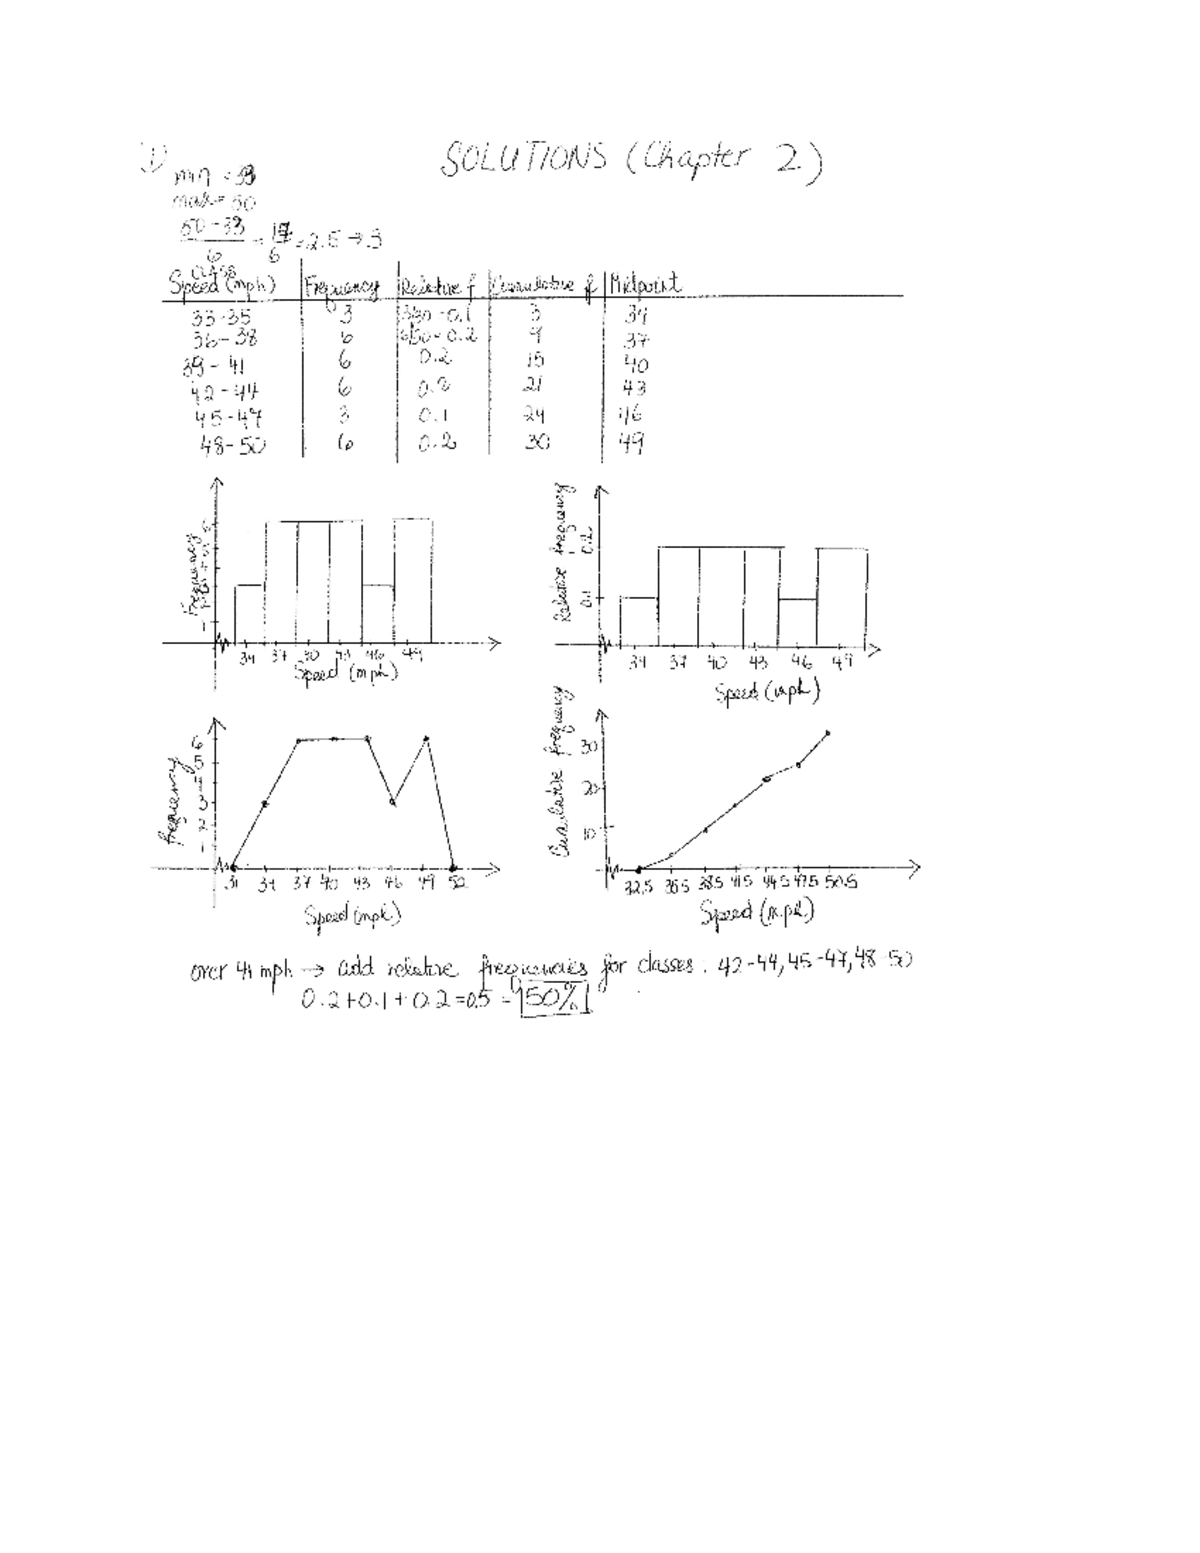 1) SOLUTIONS (Chapter 2)
min = 33
max = 50
50-33/6 = 17/6 = 2.5 → 3
CLASS
Speed (mph) Frequency Relative f Cumulative f Midpoint
33-35 3 3/30=0.1 3 34
36-38 6 6/30=0.2 9 37
39-41 6 0.2 15 40
42-44 6 0.2 21 43
45-47 3 0.1 24 46
48-50 6 0.2 30 49
Frequency
6
34 37 40 43 46 49
Speed (mph)
Relative frequency
0.2
0.1
34 37 40 43 46 49
Speed (mph)
Frequency
6
5
3
2
31 34 37 40 43 46 49 52
Speed (mph)
Cumulative frequency
30
20
10
32.5 35.5 38.5 41.5 44.5 47.5 50.5
Speed (mph)
over 41 mph → add relative frequencies for classes: 42-44, 45-47, 48-50
0.2+0.1+0.2=0.5=50%